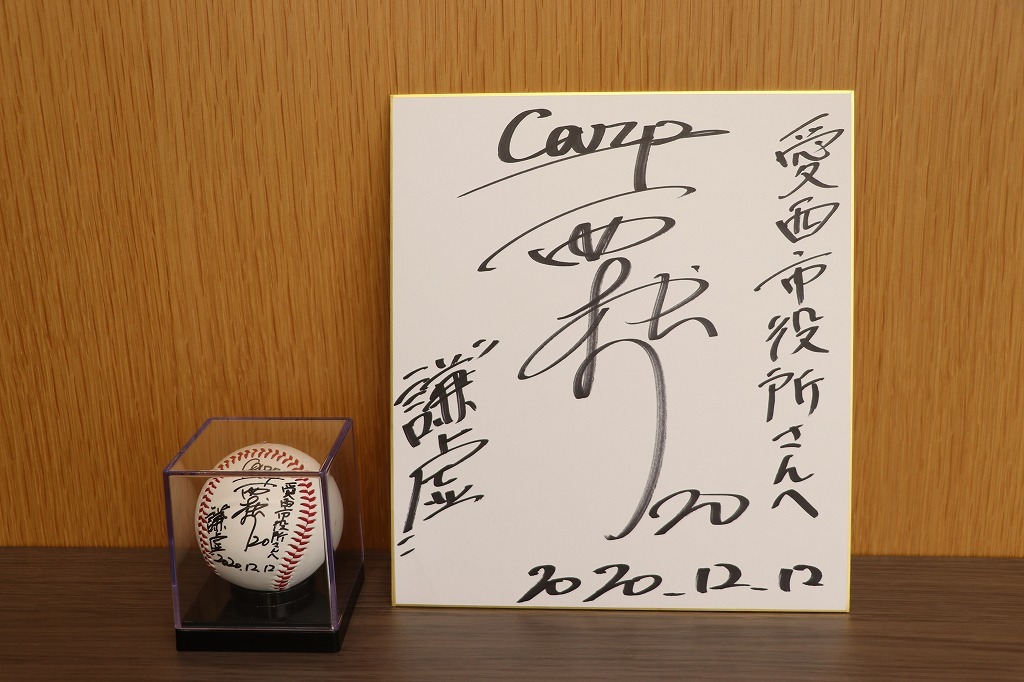 愛西市役所さんへ
Carp
20
"謙虚"
2020.12.12
愛西市役所さんへ
Carp
20
謙虚
2020.12.12